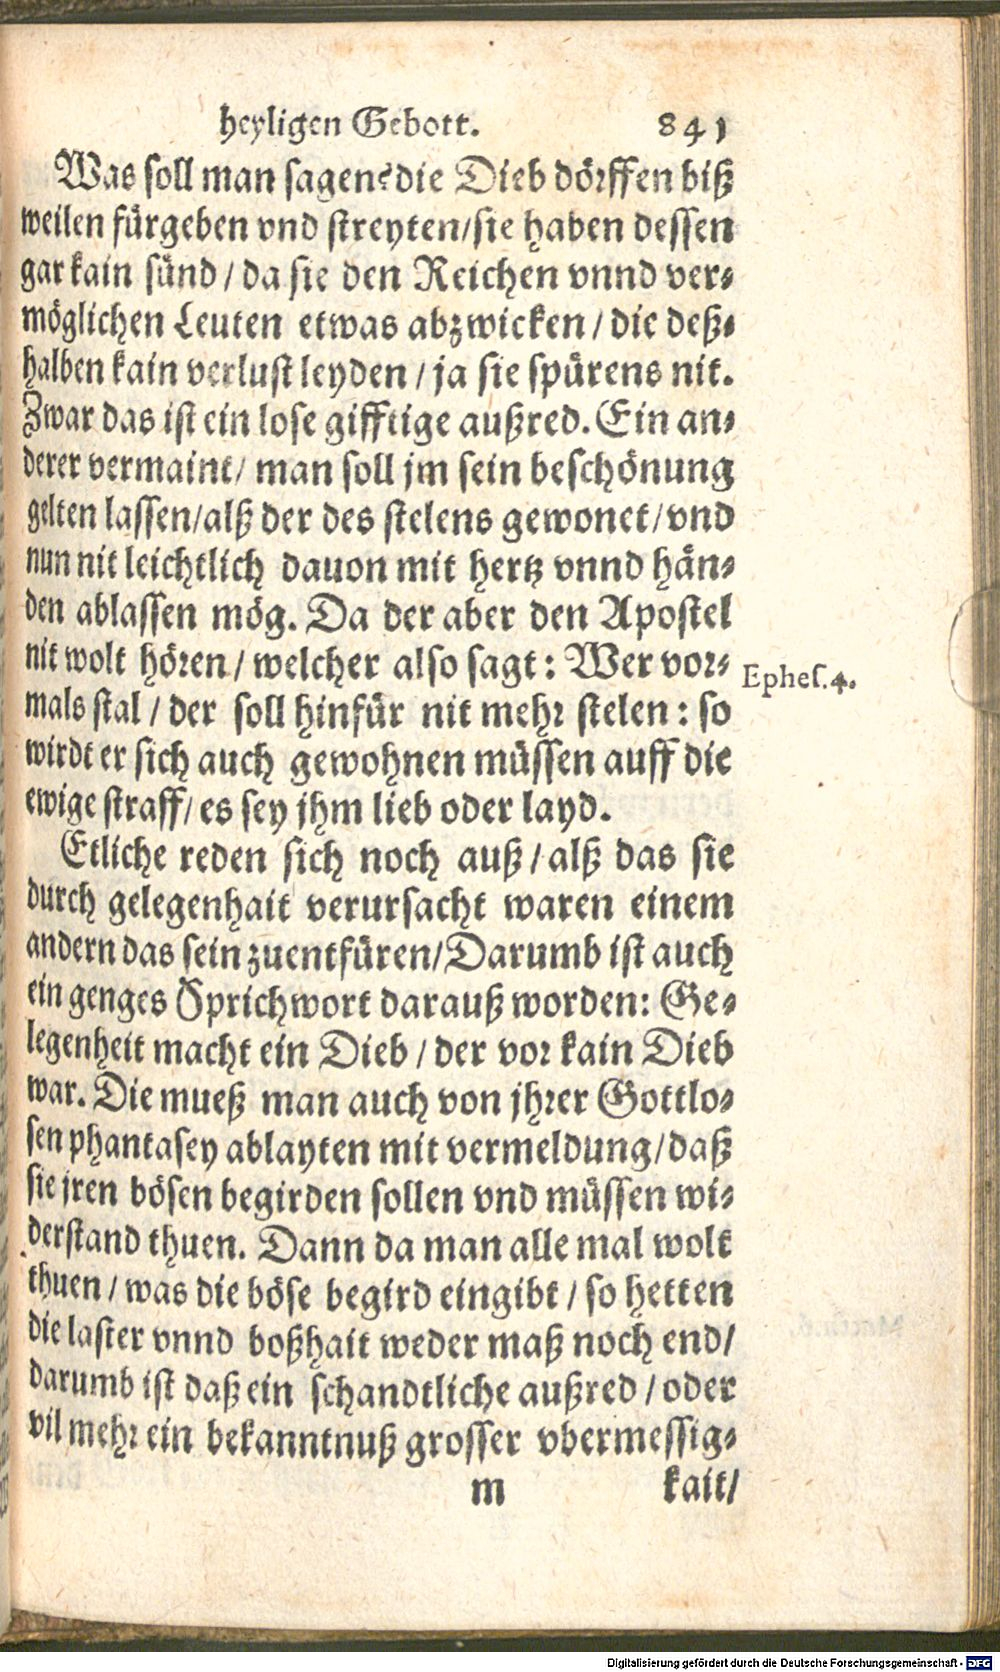 heyligen Gebott. 841
Was soll man sagen? die Dieb dörffen biß
weilen fürgeben vnd streyten/sie haben dessen
gar kain sünd / da sie den Reichen vnnd ver⸗
möglichen Leuten etwas abzwicken / die deß⸗
halben kain verlust leyden / ja sie spürens nit.
Zwar das ist ein lose gifftige außred. Ein an⸗
derer vermaint/ man soll jm sein beschönung
gelten lassen/alß der des stelens gewonet/vnd
nun nit leichtlich dauon mit hertz vnnd hän⸗
den ablassen mög. Da der aber den Apostel
nit wolt hören / welcher also sagt : Wer vor⸗
Ephes.4.
mals stal / der soll hinfür nit mehr stelen : so
wirdt er sich auch gewohnen müssen auff die
ewige straff/ es sey jhm lieb oder layd.
Etliche reden sich noch auß / alß das sie
durch gelegenhait verursacht waren einem
andern das sein zuentfüren/Darumb ist auch
ein genges Sprichwort darauß worden: Ge⸗
legenheit macht ein Dieb / der vor kain Dieb
war. Die mueß man auch von jhrer Gottlo⸗
sen phantasey ablayten mit vermeldung/daß
sie jren bösen begirden sollen vnd müssen wi⸗
derstand thuen. Dann da man alle mal wolt
thuen / was die böse begird eingibt / so hetten
die laster vnnd boßhait weder maß noch end/
darumb ist daß ein schandtliche außred / oder
vil mehr ein bekanntnuß grosser vbermessig⸗
m kait/
Digitalisierung gefördert durch die Deutsche Forschungsgemeinschaft - DFG